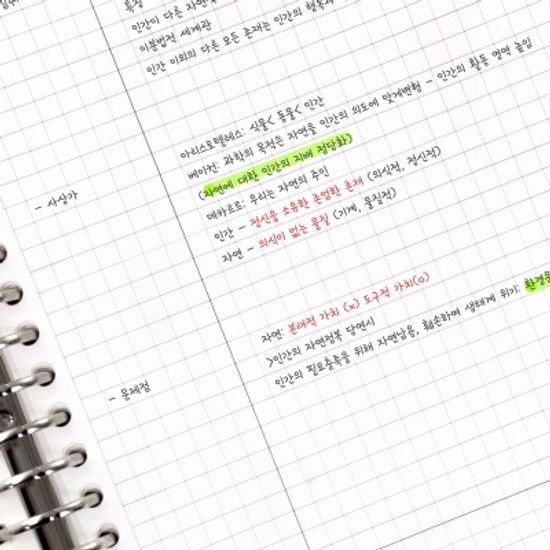 특징
인간이 다른
이분법적 세계관
인간 이외의 다른 모든 존재는 인간의 행복과
- 사상가
아리스토텔레스: 식물< 동물< 인간
베이컨: 과학의 목적은 자연을 인간의 의도에 맞게변형 - 인간의 활동 영역 높임
(자연에 대한 인간의 지배 정당화)
데카르트: 우리는 자연의 주인
인간 - 정신을 소유한 존엄한 존재 (의식적, 정신적)
자연 - 의식이 없는 물질 (기계, 물질적)
- 문제점
자연: 본래적 가치 (x) 도구적 가치(o)
>인간의 자연정복 당연시
인간의 필요충족을 위해 자연남용, 훼손하여 생태계 위기: 환경문